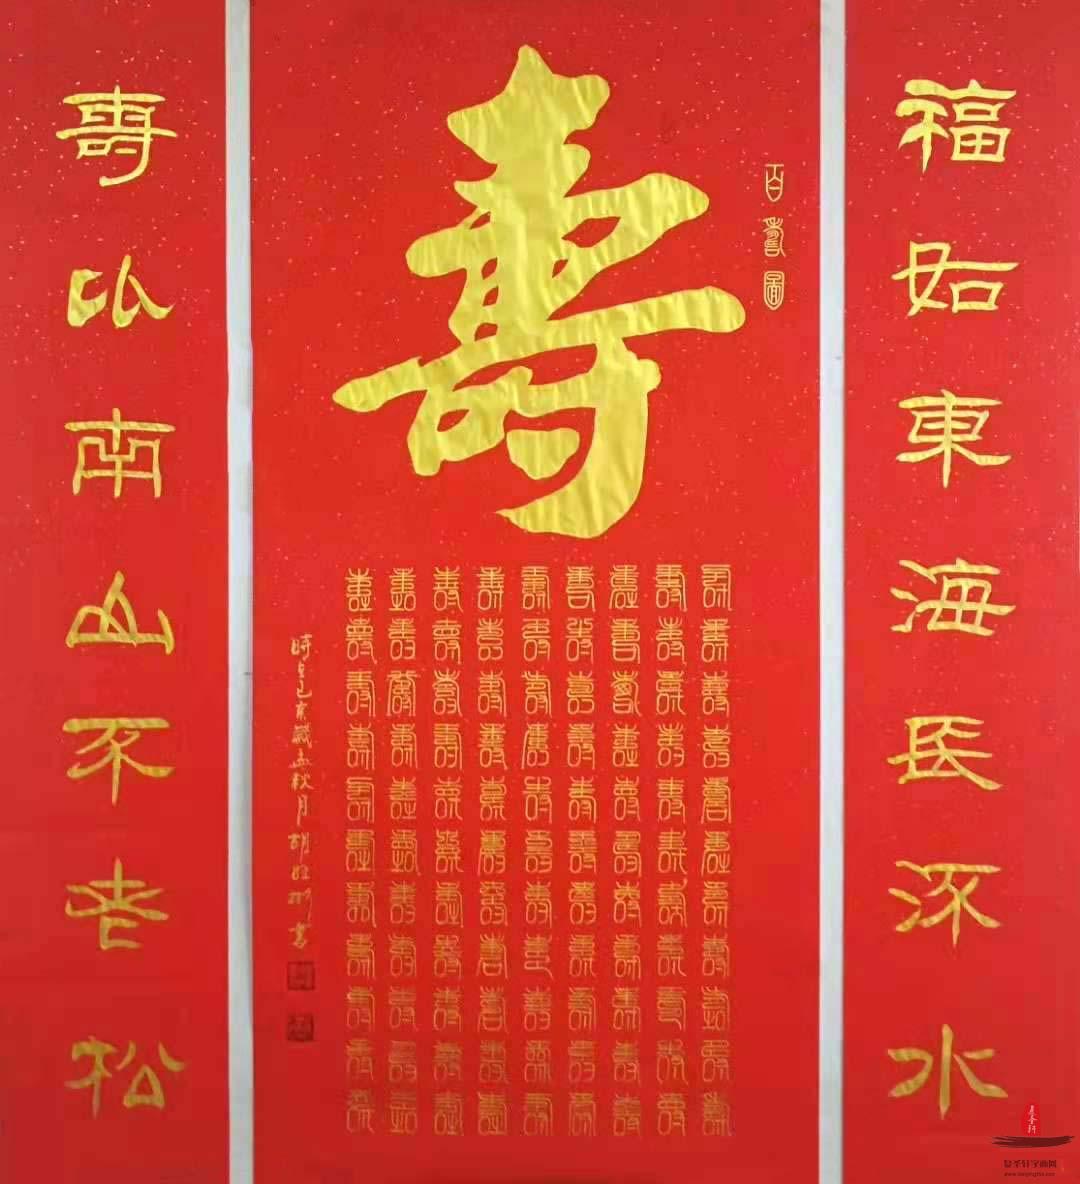 福如東海長流水
百壽圖
壽
壽壽壽壽壽壽壽壽壽壽壽
壽壽壽壽壽壽壽壽壽壽壽
壽壽壽壽壽壽壽壽壽壽壽
壽壽壽壽壽壽壽壽壽壽壽
壽壽壽壽壽壽壽壽壽壽壽
壽壽壽壽壽壽壽壽壽壽壽
壽壽壽壽壽壽壽壽壽壽壽
壽壽壽壽壽壽壽壽壽壽壽
壽壽壽壽壽壽壽壽壽壽壽
時在己亥歲孟秋月胡書
壽比南山不老松
圣轩字画网